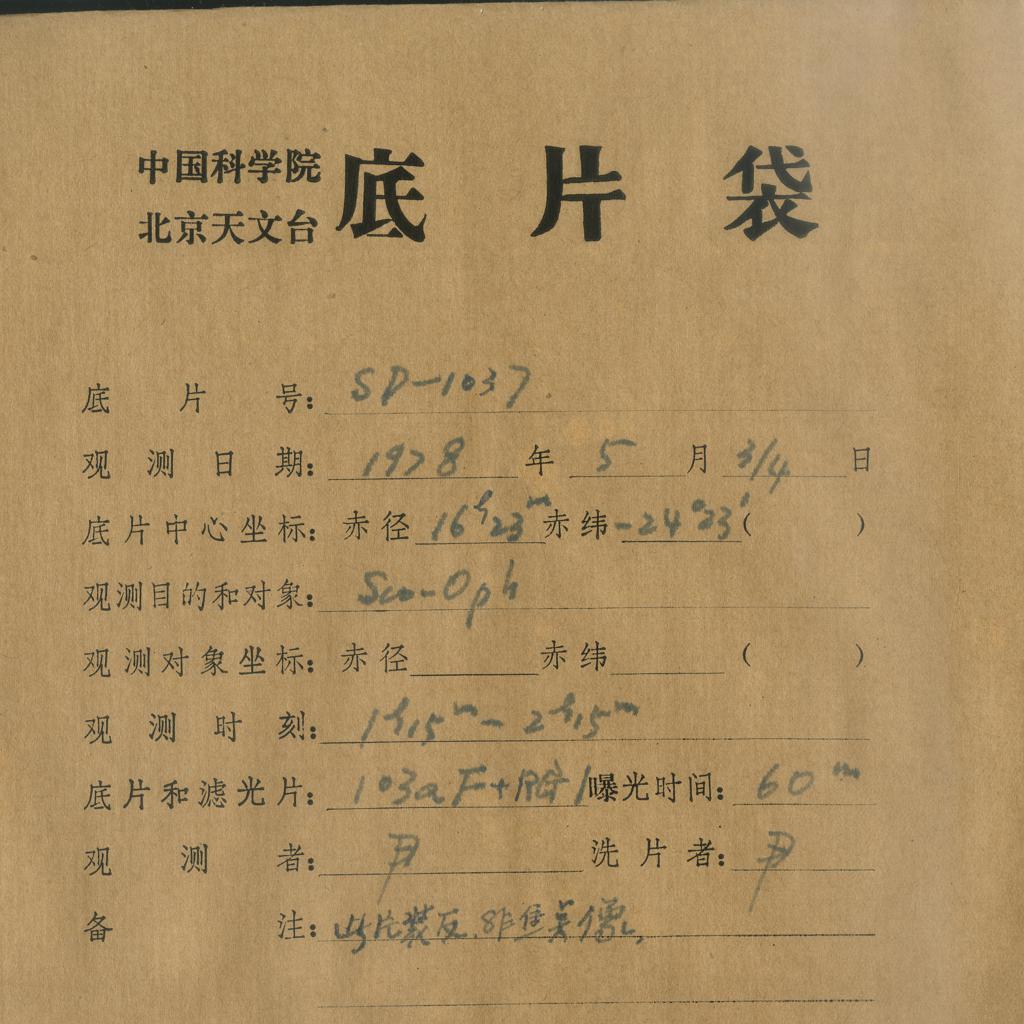 中国科学院
北京天文台
底片袋
底片号: SD-1037
观测日期: 1978 年 5 月 3/4 日
底片中心坐标: 赤径 16h23m 赤纬 -24°23′ ( )
观测目的和对象: Sco-Oph
观测对象坐标: 赤径 赤纬 ( )
观测时刻: 1h15m - 2h15m
底片和滤光片: 103aF+RG1 曝光时间: 60m
观测者: 尹 洗片者: 尹
备注: 此片装反,非焦 像,